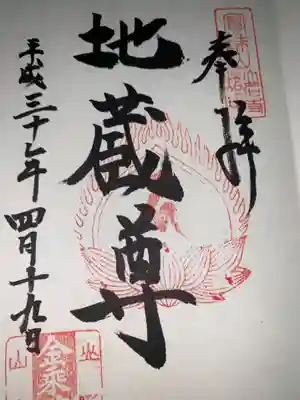 奉拝
地蔵尊
平成三十一年四月十九日
金乗